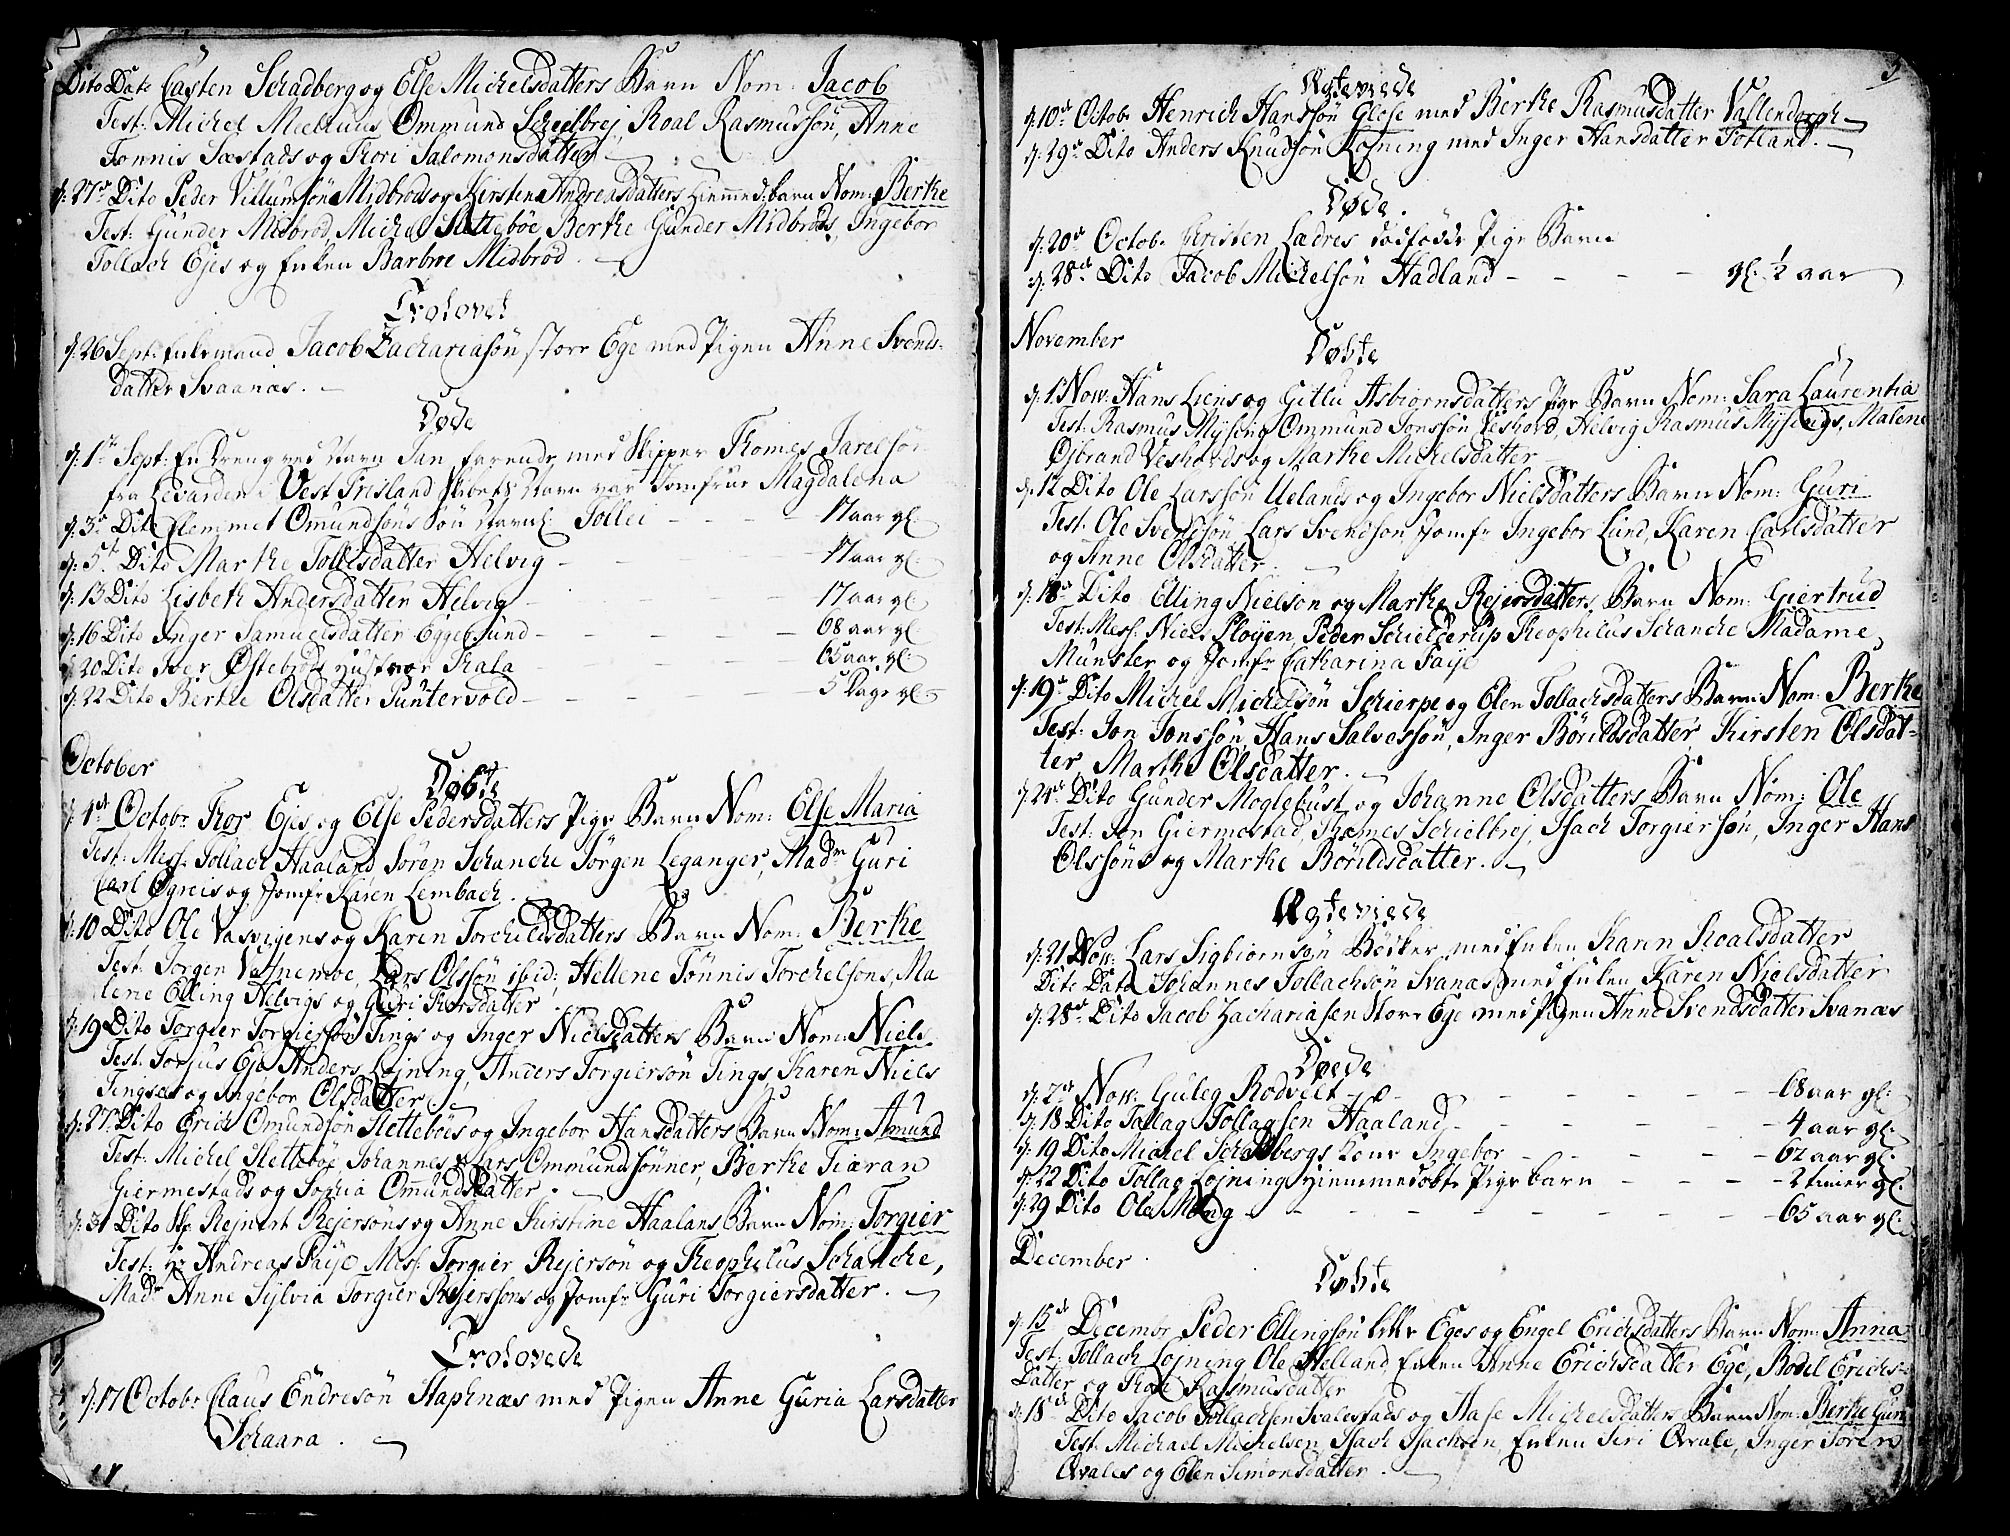 Dito Dato Casten Schadberg og Else Michelsdatters Barn Nom: Jacob
Test: Michel Ommund Scheelbrej, Roal Rasmussön, Anne
Tonnis Sæstads og Thori Salomonsdatter
d: 27de Dito Peder Villumsön Midbröd og Kirsten Andreasdatters Hiemmed: barn Nom: Berthe
Test: Gunder Midbröd, Michel Sletteböe Berthe Gunder Midbröds, Ingebor
Tollach Ejes og Enken Barbroe Midbröd.
Trolovet
d: 26 Sept: Enkemand Jacob Zachariasön store Ege med Pigen Anne Svends-
datter Svaanæs.
Døde
d: 1te Sept: En Dreng ved Navn Jan farende med Skipper Thomes
fra Levarden i Vest Frisland Skibets Navn var Jomfrue Magdalena
d: 3de Dito Clemmet Omundsöns Sön Navnl: Tollei - - - 17 aar gl:
d: 5te Dito Marthe Tollisdatter Helvig - - 17 aar gl:
d: 13 Dito Lisbeth Andersdatter Helvig - - 17 aar gl:
d: 16 Dito Inger Samuelsdatter Eggersund - - 68 aar gl:
d: 20 Dito Iver Østebröds Hustroe Thala - - 65 aar gl:
d: 22 Dito Berthe Olsdatter Puntervold - - 5 Dage gl:
October
Døbte
d: 1de Octobr Thor Ejes og Else Pedersdatters Pige Barn Nom: Else Maria
Test: Mess: Tollach Haaland, Sören Schanche Jörgen Leganger, Madm Guri
Carl Øgreis og Jomfr Karen Lembach.
d: 10 Dito Ole Vasvigens og Karen Torchildsdatters Barn Nom: Berthe
Test: Jorgen Lars Olssön ibid: Hellene Tönnis Torchelsons, Ma
lene Elling Helvigs og Guri Thorsdatter
d: 19 Dito Torgier Torgiersön Tings og Inger Nielsdatters Barn Nom: Niels
Test: Torjus Eje Anders Löjning, Anders Torgiersön Tings, Karen Niels
Tingses og Ingebor Olsdatter
d: 27de Dito Erich Omundsön Sletteböes og Ingebor Hansdatters Barn Nom: Amund
Test: Michel Slettebög Johannes & Lars Ommundssönner, Berthe
Giermestads og Sophia Omundsdatter
d: 31 Dito Sr Rejnert Rejersöns og Anne Kirstine Haalans Barn Nom: Torgier
Test: Hr Andreas Faye Mess: Torgier Rejersön og Theophilus Schanche,
Madm Anne Sylvia Torgier Rejerssöns og Jomfr Guri Torgiersdatter.
Trolovede
d: 17 Octobr Claus Endresön Stapnæs med Pigen Anne Guria Larsdatter
Schaara.
3
Ægteviede
d: 10de Octobr Henrich Hanssön Glese med Berthe Rasmusdatter
d: 29de Dito Anders Knudsön Lojning med Inger Hansdatter Totland.
Døde.
d: 20de Octobr Christen Lædres dödfödde Pige Barn
d: 28de Dito Jacob Michelsön Hadland - - - gl: 1/2 aar
November
Døbte
d: 1 Nov: Hans Liens og Gitlu Asbiornsdatters Pige Barn Nom: Sara Laurentia
Test: Rasmus Mysing Ommund Jonssön Veshord, Helvig Rasmus Mysings, Malene
Osbrand Veshords og Marthe Michelsdatter
d: 12 Dito Ole Larssön Uelands og Ingebor Nielsdatters Barn Nom: Guri
Test: Ole Svendssön, Lars Svendson, Jomfr Ingebor Lund, Karen Carlsdatter
og Anne Olsdatter.
d: 18de Dito Elling Nielson og Marthe Rejersdatters Barn Nom: Giertrud
Test: Mess: Niels Ployen, Peder Schielderup Theophilus Schanche Madame
Munster og Jomfr Catharina Faye
d: 19de Dito Michel Michelsön Schierpe og Elen Tollachsdatters Barn Nom: Berthe
Test: Jon Jonssön, Hans Salvessön, Inger Börildsdatter, Kirsten Olsdat-
ter Marthe Olsdatter.
d: 24de Dito Gunder Moglebust og Johanne Olsdatters Barn Nom: Ole
Test: Jon Giermestad, Thomes Schielbrej, Isach Torgiersön, Inger Hans
Olssöns og Marthe Börildsdatter.
Ægteviede
d: 21 Nov: Lars Sigbiornsön Bödker med Enken Karin Roalsdatter
Dito Dato Johannes Tollachsön Svanæs med Enken Karen Nielsdatter
d: 28de Dito Jacob Zachariasen Store Ege med Pigen Anne Svendsdatter Svanæs
Døede
d: 2de Nov: Guleg Rodvelt - - - 68 aar gl:
d: 18 Dito Tollag Tollagsen Haaland - - - 4 aar gl:
d: 19 Dito Michel Schadbergs Kone Ingebor - - - 62 aar gl:
d: 22 Dito Tollag Lojning Hiemmedöbte Pige barn - - - 2 timer gl:
d: 29 Dito Ole Mong - - - 65 aar gl:
December
Døbte
d: 15de Decembr Peder Ellingsön lille Eges og Engel Erichsdatters Barn Nom: Anna
Test: Tollach Lojning Ole Helland, Enken Anne Erichsdatter Ege, Bodel Erichs-
datter og Thore Rasmusdatter
d: 18de Dito Jacob Tollachsen Svalestads og Aase Michelsdatters Barn Nom: Berthe Guri
Test: Michael Michelsen, Isach Isachsen, Enken Siri Qvale, Inger Sören
Qvales og Elen Simonsdatter.